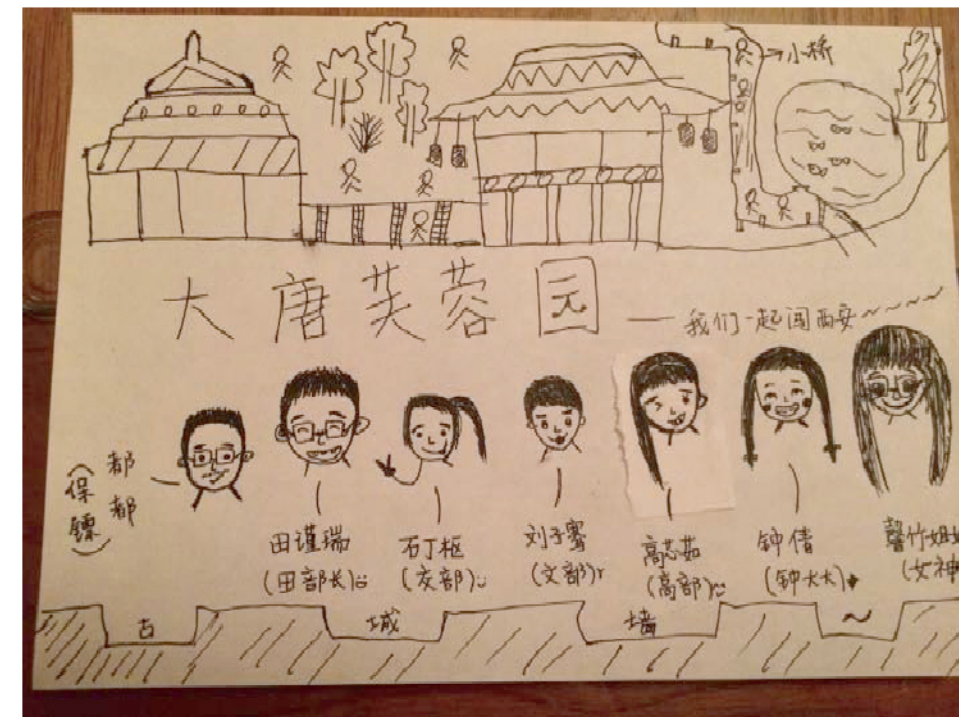 →小桥
大唐芙蓉园
——我们一起闯西安~~~~
都都
(保镖)
田谨瑞
(田部长)
石丁枢
(友部)
刘子骞
(文部)
高芯茹
(高部)
钟倩
(钟大大)
馨竹姐
(女神
古城墙~